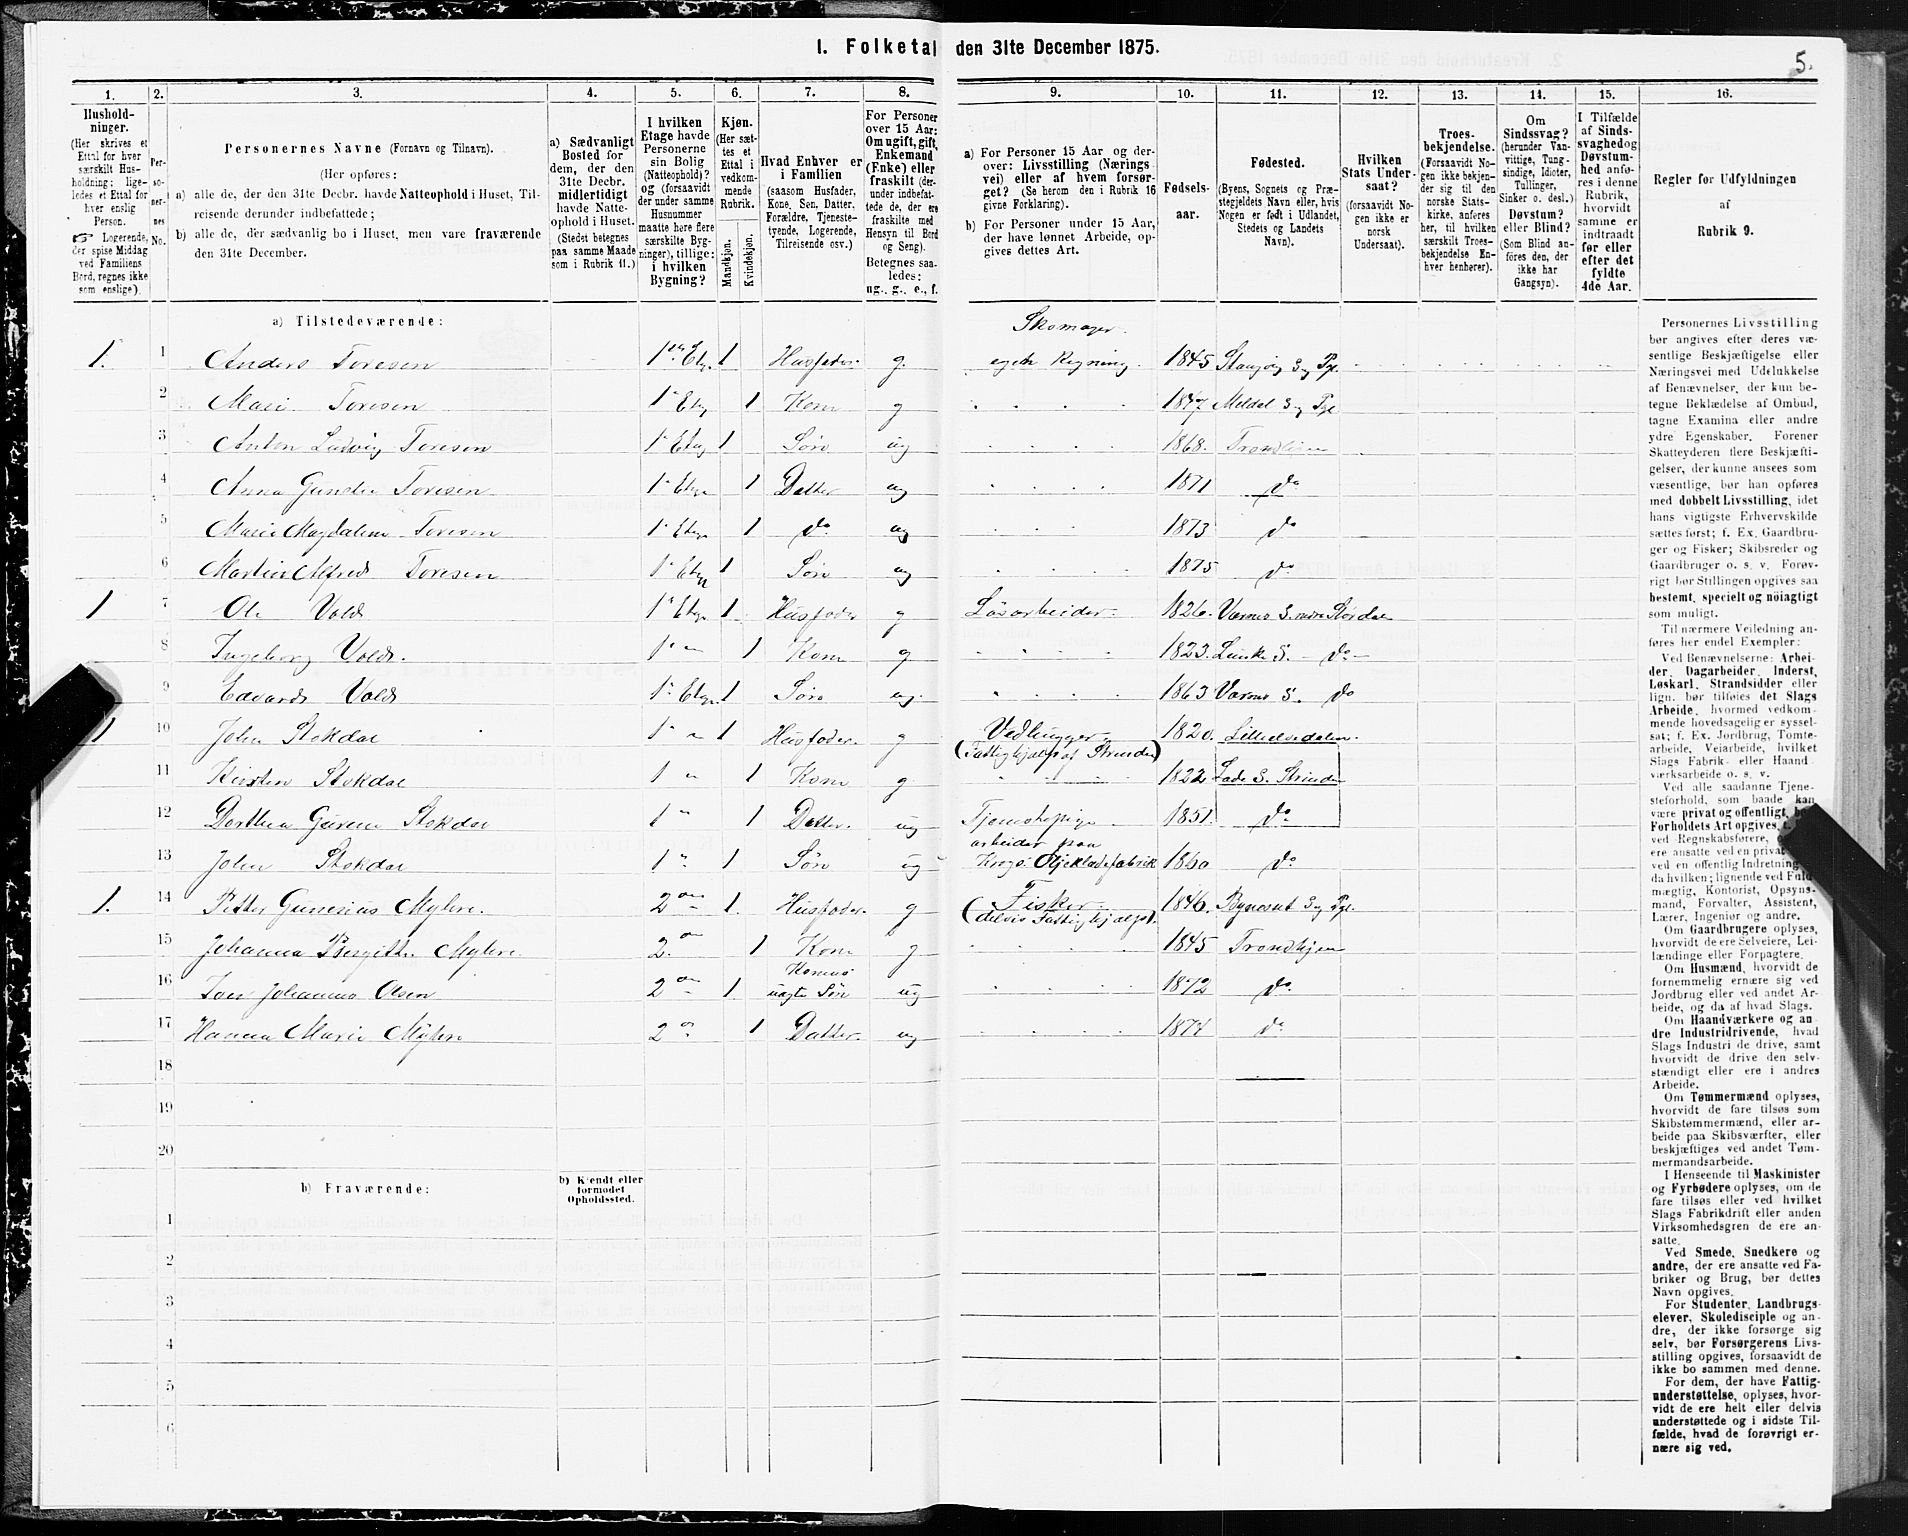 1. Folketal den 31te December 1875.
5.
1. 2. 3. 4. 5. 6. 7. 8. 9. 10. 11. 12. 13. 14. 15. 16.
Hushold-
ninger.
(Her skrives et
Ettal for hver
særskilt Hus-
holdning; lige-
ledes et Ettal for
hver enslig
Person.
☞ Logerende,
der spise Middag
ved Familiens
Bord, regnes ikke
som enslige).
Per-
so-
ner-
nes
No.
Personernes Navne (Fornavn og Tilnavn).
(Her opføres:
a) alle de, der den 31te Decbr. havde Natteophold i Huset, Til-
reisende derunder indbefattede;
b) alle de, der sædvanlig bo i Huset, men vare fraværende
den 31te December.
a) Sædvanligt
Bosted for
dem, der den
31te Decbr.
midlertidigt
havde Natte-
ophold i Huset.
(Stedet betegnes
paa samme Maade
som i Rubrik 11.)
I hvilken
Etage havde
Personerne
sin Bolig
(Natteophold)?
og (forsaavidt
der under samme
Husnummer
maatte høre flere
særskilte Byg-
ninger), tillige:
i hvilken
Bygning?
Kjøn.
(Her sæt-
tes et
Ettal i
vedkom-
mende
Rubrik.
Mandkjøn.
Kvindekjøn.
Hvad Enhver er
i Familien
(saasom Husfader,
Kone, Søn, Datter,
Forældre, Tjeneste-
tyende, Logerende,
Tilreisende osv.)
For Personer
over 15 Aar:
Om ugift, gift,
Enkemand
(Enke) eller
fraskilt (der-
under indbefat-
tede de, der ere
fraskilte med
Hensyn til Bord
og Seng).
Betegnes saa-
ledes:
ug., g., e., f.
a) For Personer 15 Aar og der-
over: Livsstilling (Nærings-
vei) eller af hvem forsør-
get? (Se herom den i Rubrik 16
givne Forklaring).
b) For Personer under 15 Aar,
der have lønnet Arbeide, op-
gives dettes Art.
Fødsels-
aar.
Fødested.
(Byens, Sognets og Præ-
stegjeldets Navn eller, hvis
Nogen er født i Udlandet,
Stedets og Landets
Navn).
Hvilken
Stats Under-
saat?
(forsaavidt No-
gen ikke er
norsk
Undersaat).
Troes-
bekjendelse.
(Forsaavidt No-
gen ikke bekjen-
der sig til den
norske Stats-
kirke, anføres
her, til hvilken
særskilt Troes-
bekjendelse En-
hver henhører).
Om
Sindssvag?
(herunder Van-
vittige, Tung-
sindige, Idioter,
Tullinger,
Sinker o. desl.)
Døvstum?
eller Blind?
(Som Blind an-
føres den, der
ikke har
Gangsyn).
I Tilfælde
af Sinds-
svaghed og
Døvstum-
hed anfø-
res i denne
Rubrik,
hvorvidt
samme er
indtraadt
før eller
efter det
fyldte
4de Aar.
Regler for Udfyldningen
af
Rubrik 9.
a) Tilstedeværende:
1. 1 Anders Toresen 1 Etg. 1 Husfader g. Skomager egen Regning. 1845 S. og Pg.
2 Mari Toresen 1 Etg 1 Kone g 1847 Meldal S og Pgl
3 Anton Ludvig Toresen 1 Etag 1 Søn ug 1868. Trondhjem
4 Anna Toresen 1 Etge 1 Datter ug 1871 do
5 Marie Magdalene Toresen 1 Etge 1 do ug 1873 do
6 Martin Alfred Toresen 1 Etg 1 Søn ug 1875 do
1 7 Ole Vold 1 Etge 1 Husfader g Løsarbeider. 1826. Værnes S. nedre Stördal
8 Ingeborg Vold. 1 " 1 Kone g 1823. Lunke S. - do -
9 Edvard Vold 1 Etge 1 Søn ug. 1863 Værnes S. do
1 10 John Stokdal 1 " 1 Husfader. g Vedhugger (Fattighjælp af Strinden) 1820. Lilleelvedalen.
11 Kirsten Stokdal 1 " Kone g. 1822 Lade S. Strinden
12 Dorthea Stokdal 1 " 1 Datter. ug Tjenestepige 1851. do
13 John Stokdal 1 " 1 Søn ug arbeider paa Oljeklædefabrik 1860 do
1. 14 Petter Myhre. 2den 1. Husfader. g Fisker. (delvis Fattighjælp). 1846. Bynesset S og Pgl.
15 Johanna Bergitte Myhre. 2. 1 Kone g 1845 Trondhjem
16 Johannes Olsen 2den 1. Konens uægte Søn ug 1872 do
17 Hanna Marie Myhre 2 1 Datter. ug 1874 do
18
19
20
b) Fraværende:
b) Kjendt eller
formodet
Opholdssted.
1
2
3
4
5
6
Personernes Livsstilling
bør angives efter deres væ-
sentlige Beskjæftigelse eller
Næringsvei med Udelukkelse
af Benævnelser, der kun be-
tegne Beklædelse af Ombud,
tagne Examina eller andre
ydre Egenskaber. Forener
Skatteyderen flere Beskjæfti-
gelser, der kunne ansees som
væsentlige, bør han opføres
med dobbelt Livsstilling, idet
hans vigtigste Erhvervskilde
sættes først; f. Ex. Gaardbru-
ger og Fisker; Skibsreder og
Gaardbruger o. s. v. Forøv-
rigt bør Stillingen opgives saa
bestemt, specielt og nöiagtigt
som muligt.
Til nærmere Veiledning an-
føres her endel Exempler:
Ved Benævnelserne: Arbei-
der, Dagarbeider, Inderst,
Løskarl, Strandsidder eller
lign. bør tilføies det Slags
Arbeide, hvormed vedkom-
mende hovedsagelig er syssel-
sat; f. Ex. Jordbrug, Tomte-
arbeide, Veiarbeide, hvilket
Slags Fabrik- eller Haand-
værksarbeide o. s. v.
Ved alle saadanne Tjene-
steforhold, som baade kan
være privat og offentligt, bør
Forholdets Art opgives,
ved Regnskabsførere,
ere ansatte ved en privat
ved en offentlig Indretning
da hvilken; lignende ved Fuld-
mægtig, Kontorist, Opsyns-
mand, Forvalter, Assistent,
Lærer, Ingeniør og andre.
Om Gaardbrugere oplyses,
hvorvidt de ere Selveiere, Lei-
lændinge eller Forpagtere.
Om Husmænd, hvorvidt de
fornemmelig ernære sig ved
Jordbrug eller ved andet Ar-
beide, og da af hvad Slags.
Om Haandværkere og an-
dre Industridrivende, hvad
Slags Industri de drive, samt
hvorvidt de drive den selv-
stændigt eller ere i andres
Arbeide.
Om Tømmermænd oplyses,
hvorvidt de fare tilsøs som
Skibstømmermænd, eller ar-
beide paa Skibsværfter, eller
beskjæftiges ved andet Tøm-
mermandsarbeide.
I Henseende til Maskinister
og Fyrbødere oplyses, om de
fare tilsøs eller ved hvilket
Slags Fabrikdrift eller anden
Virksomhedsgren de ere an-
satte.
Ved Smede, Snedkere og
andre, der ere ansatte ved Fa-
briker og Brug, bør dettes
Navn opgives.
For Studenter, Landbrugs-
elever, Skoledisciple og an-
dre, der ikke forsørge sig
selv, bør Forsørgerens Livs-
stilling opgives, forsaavidt de
ikke bo sammen med denne.
For dem, der have Fattig-
understøttelse, oplyses, hvor-
vidt de ere helt eller delvis
understøttede og i sidste Til-
fælde, hvad de forøvrigt er-
nære sig ved.